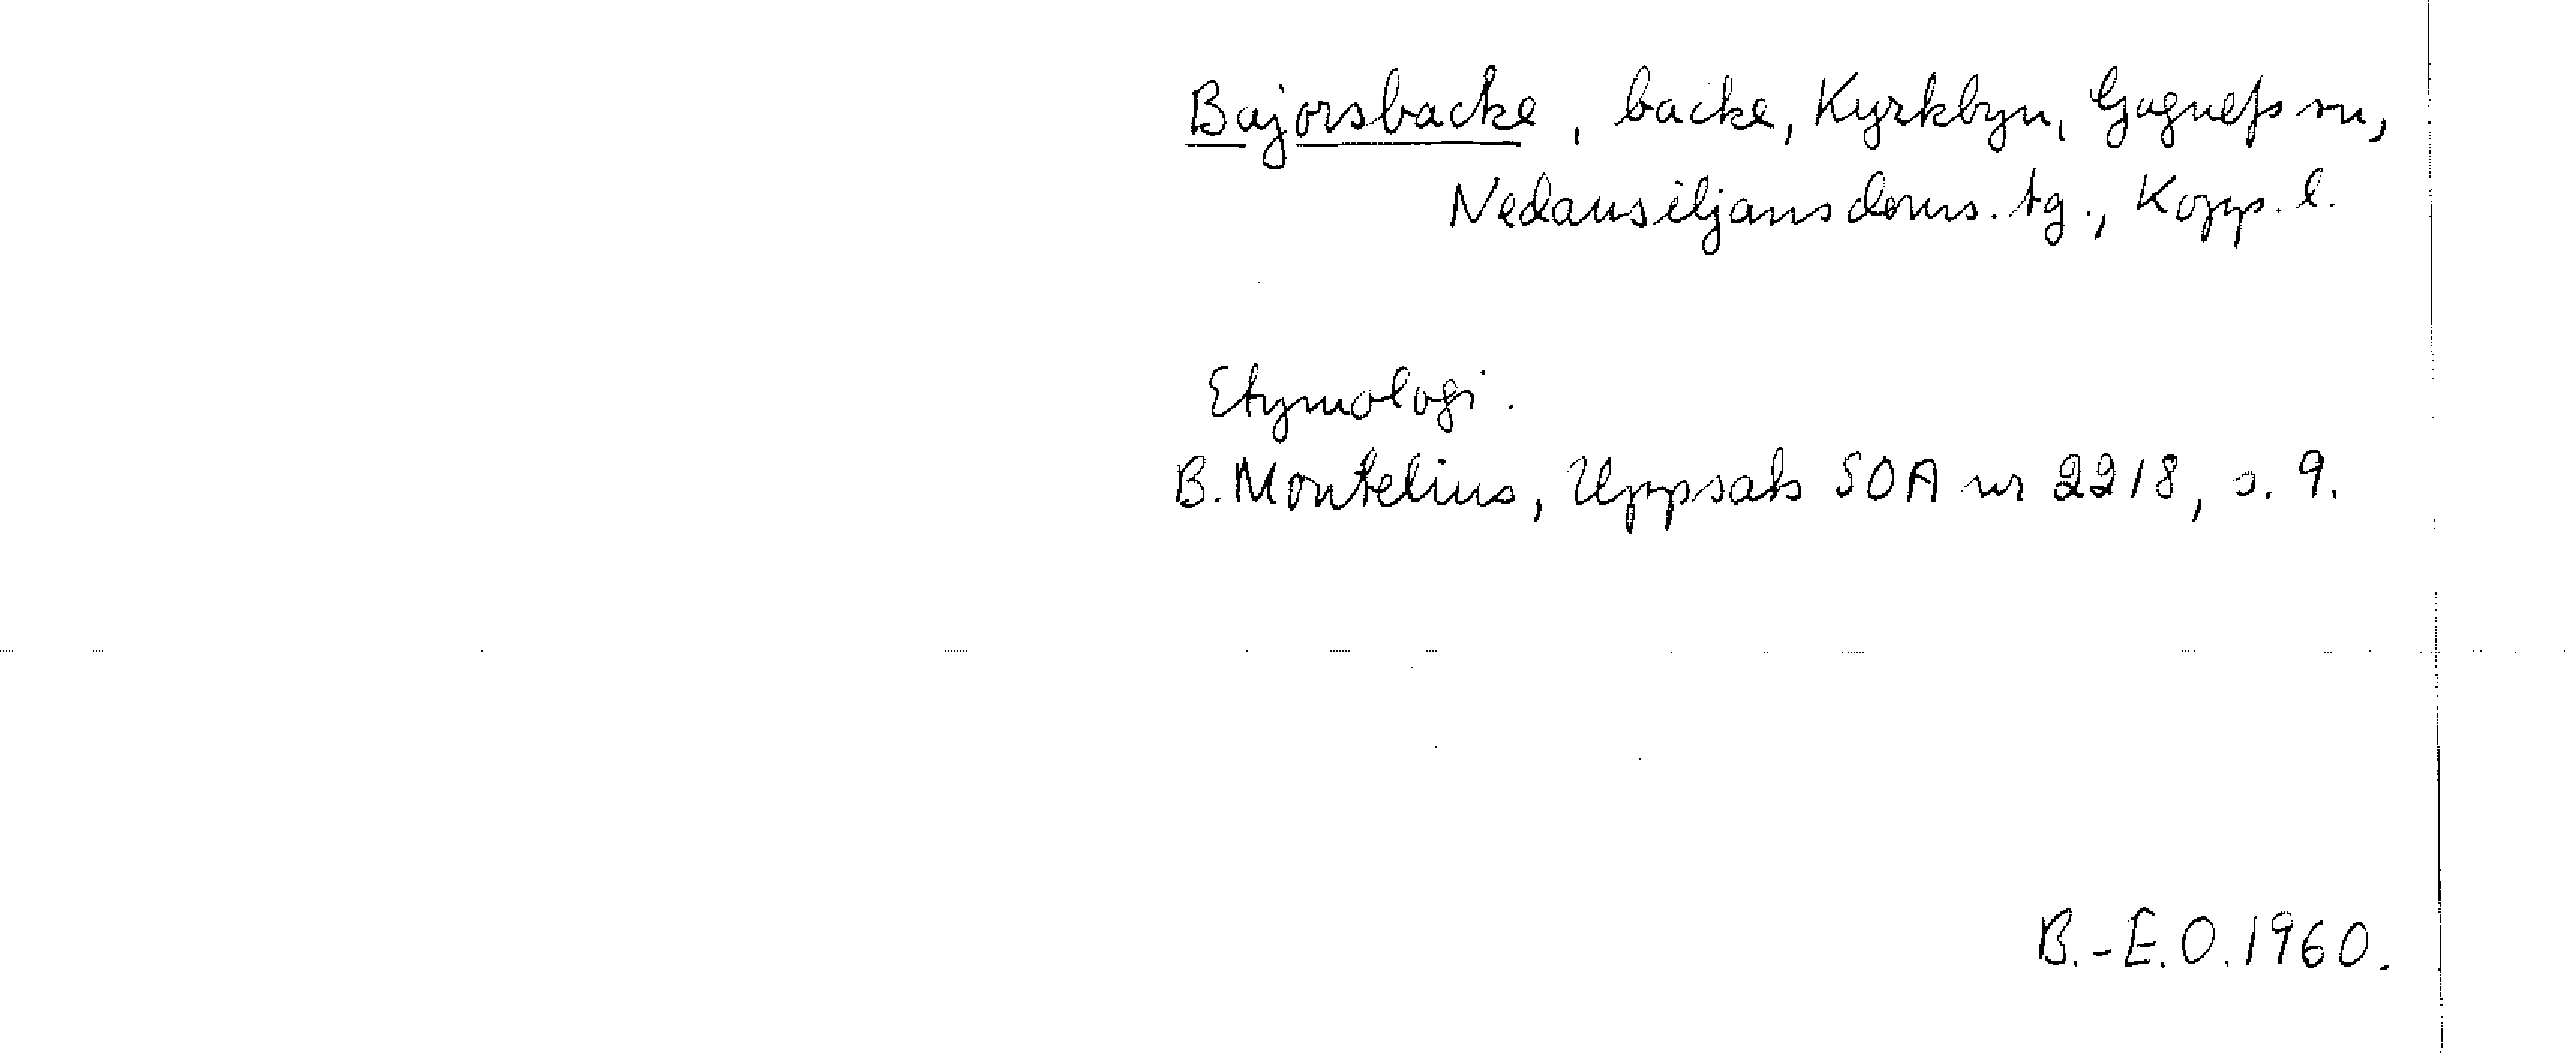 Bajorsbacke, backe, Kyrkbyn, Gagnefs sn,
Nedansiljans doms. tg., Kopp. l.
Etymologi.
B. Montelius, Uppsats SOA nr 2218, s. 9.
B.-E.O. 1960.